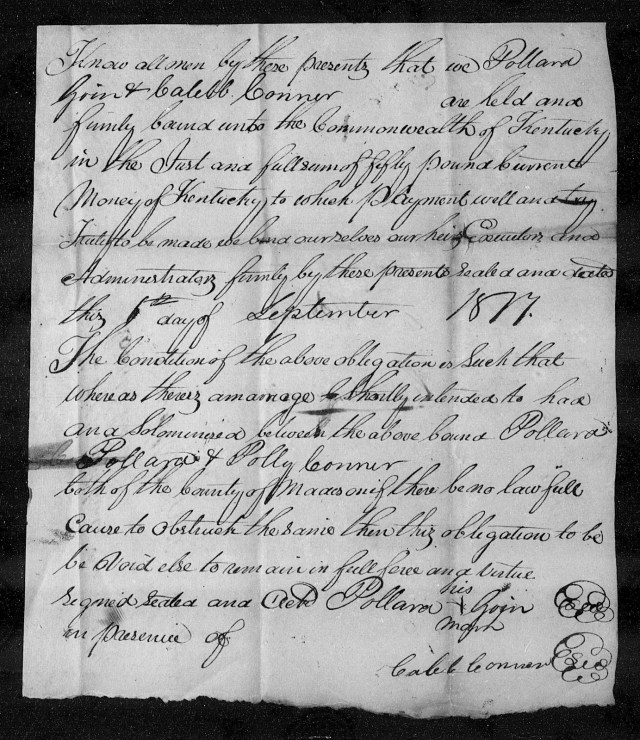 Know all men by these presents that we Pollard
Goin & Caleb Conner are held and
firmly bound unto the Commonwealth of Kentucky
in the Just and full sum of fifty pound Current
Money of Kentucky to which payment well and try
Truly to be made we bind ourselves our heirs Executors and
Administrators firmly by these presents sealed and dated
this day of September 1817.
The Condition of the above obligation is Such that
where as there is a marriage Shortly intended to had
and Solominised between the above bound Pollard
Pollard & Polly Conner
both of the County of Madison if there be no law full
Cause to obstruct the same then this obligation to be
be Void else to remain in full force and virtue
signed sealed and Pollard his + mark Goin
in presence of
Caleb Conner